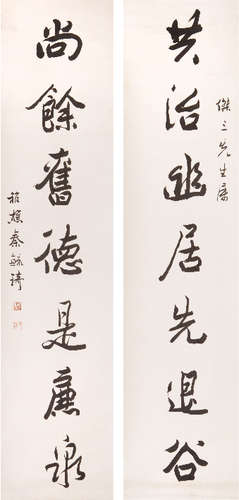 共治幽居先退谷
傑三先生屬
尚餘舊德是廉泉
稚樵秦毓琦